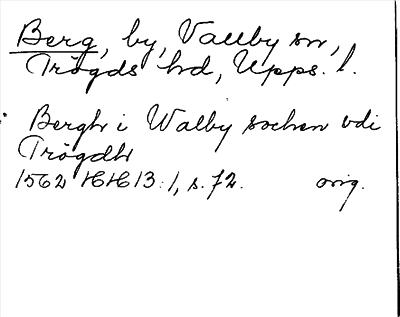 Berg, by, Vallby sn,
Trögds hd, Upps. l.
Bergh i Walby sochen vdi
Trögdh
1562 HH 13:1, s. 72. orig.